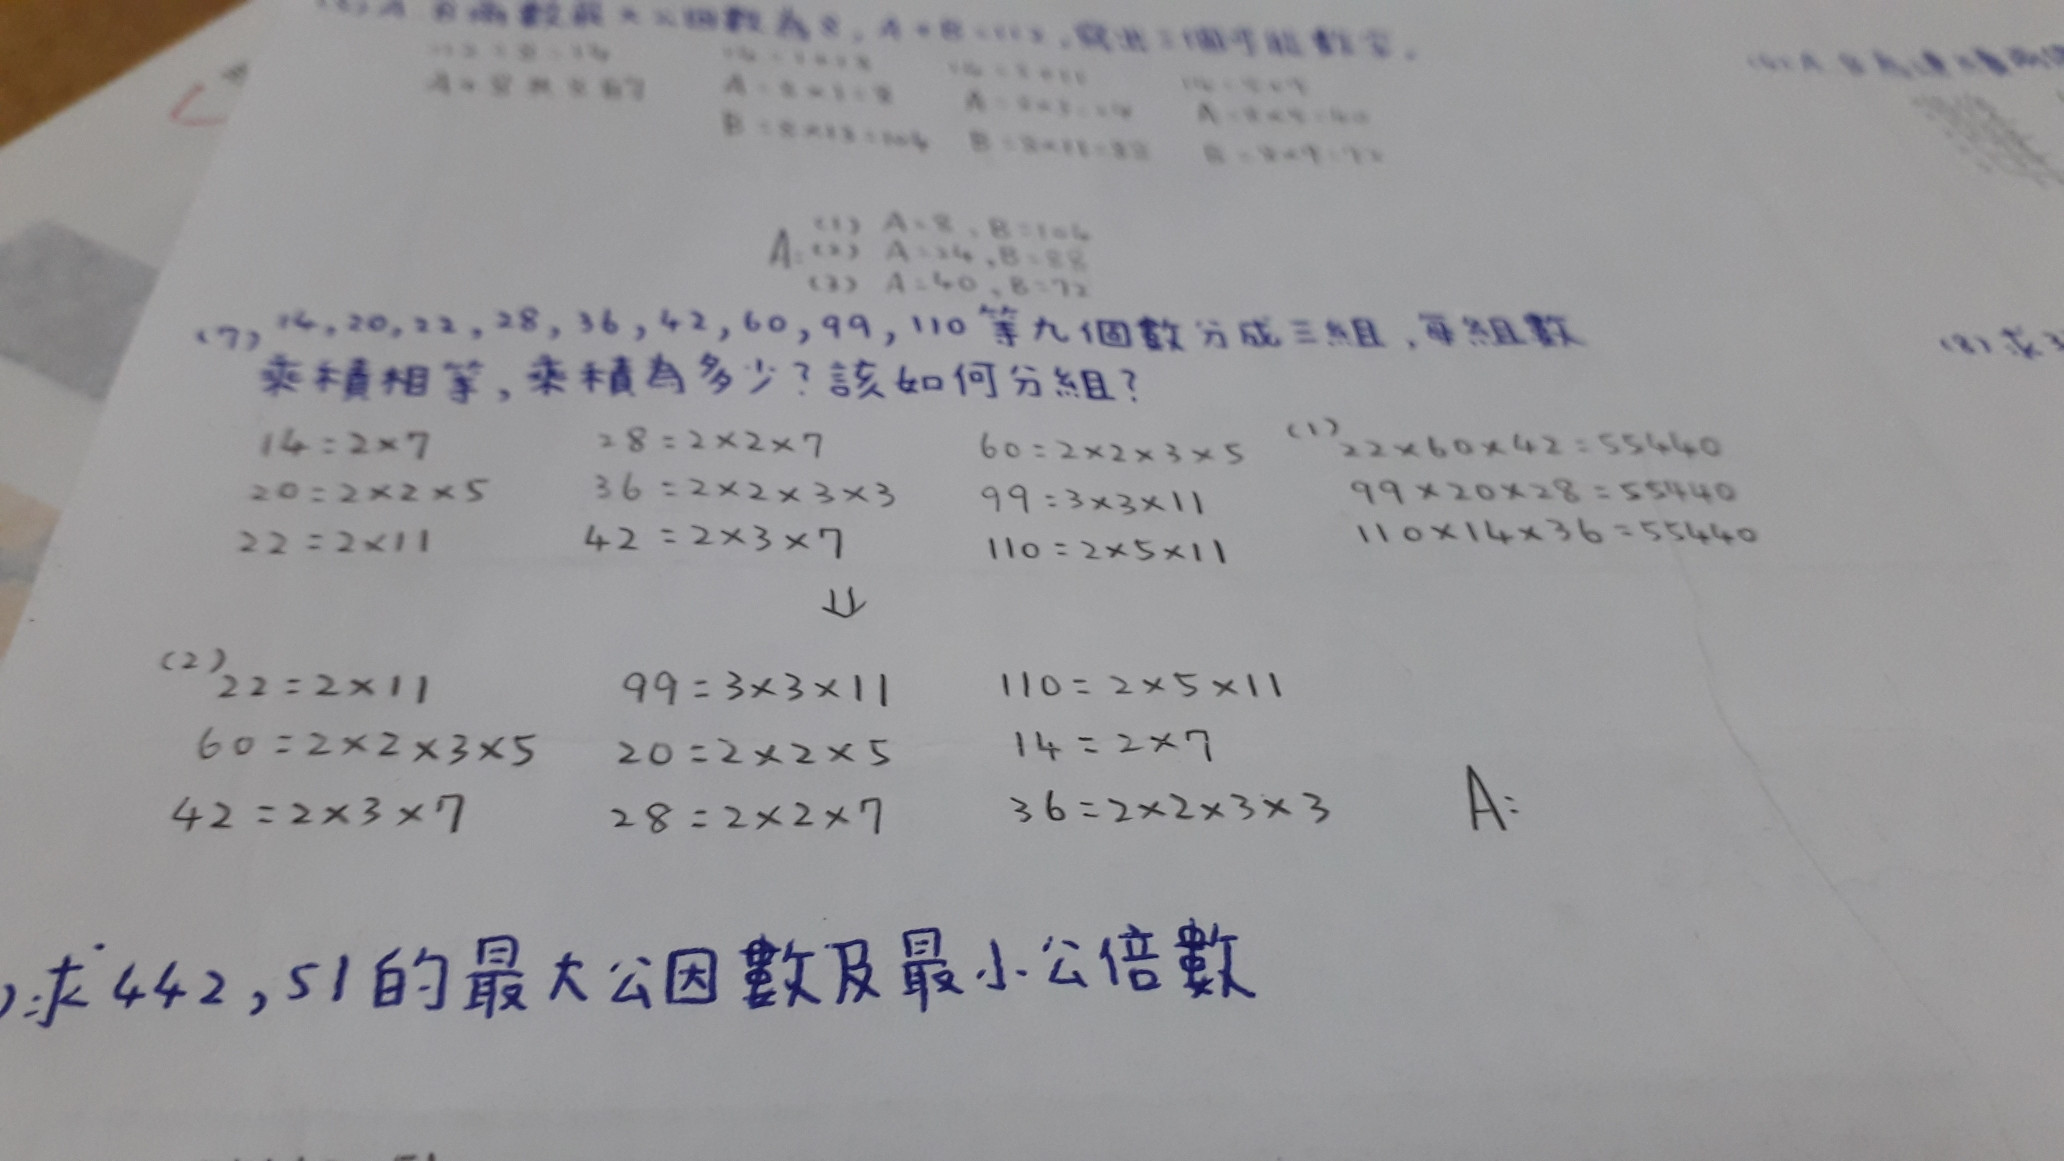 A B兩數最大公因數為8，A+B=112，寫出三個可能數字。
A=8×1=8
B=8×13=104
A=8×3=24
B=8×11=88
A=8×5=40
B=8×9=72
A: (1) A=8、B=104
(2) A=24、B=88
(3) A=40、B=72
(7) 14,20,22,28,36,42,60,99,110等九個數分成三組，每組數
乘積相等，乘積為多少？該如何分組？
14=2×7 28=2×2×7 60=2×2×3×5 (1) 22×60×42=55440
20=2×2×5 36=2×2×3×3 99=3×3×11 99×20×28=55440
22=2×11 42=2×3×7 110=2×5×11 110×14×36=55440
⇓
(2) 22=2×11 99=3×3×11 110=2×5×11
60=2×2×3×5 20=2×2×5 14=2×7
42=2×3×7 28=2×2×7 36=2×2×3×3 A:
)求442,51的最大公因數及最小公倍數
(8)求3